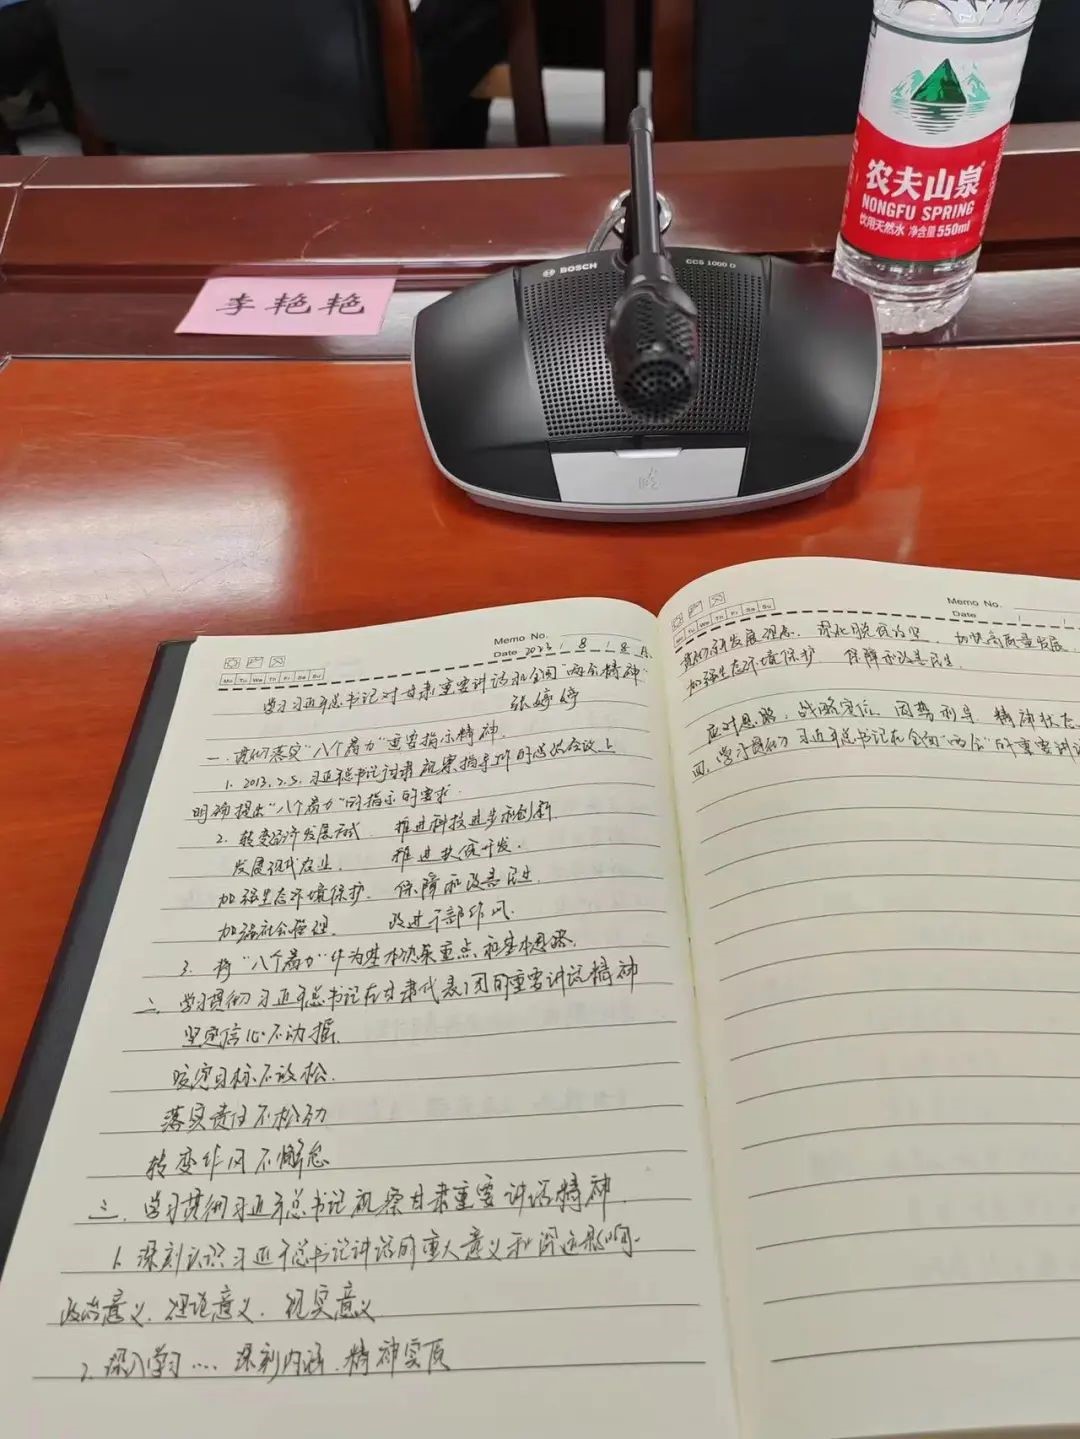 农夫山泉
NONGFU SPRING
饮用天然水 净含量 550ml
BOSCH
CCS 1000 D
李艳艳
Memo No.
Date 2023 / 8 / 8
Mo Tu We Th Fr Sa Su
学习习近平总书记对甘肃重要讲话和全国"两会精神"
张婷婷
一、贯彻落实"八个着力"重要指示精神.
1. 2013.2.5. 习近平总书记甘肃视察指导工作的会议上
明确提出"八个着力"的指示的要求.
2. 转变经济发展方式 推进科技进步和创新
发展现代农业. 推进扶贫开发.
加强生态环境保护. 保障和改善民生.
加强社会管理. 改进干部作风.
3. 将"八个着力"作为基本决策重点和基本思路.
二、学习贯彻习近平总书记在甘肃代表团的重要讲话精神
坚定信心不动摇.
咬定目标不放松.
落实责任不松劲
转变作风不懈怠
三、学习贯彻习近平总书记视察甘肃重要讲话精神.
1. 深刻认识习近平总书记讲话的重大意义和深远影响.
政治意义、理论意义、现实意义
2. 深入学习.... 深刻内涵、精神实质
Memo No.
Date
Mo Tu We Th Fr Sa Su
贯彻新发展理念. 深化脱贫攻坚 加快高质量发展.
加强生态环境保护 保障和改善民生.
应对思路: 战略定位 因势利导 精神状态
四、学习贯彻习近平总书记在全国"两会"的重要讲话